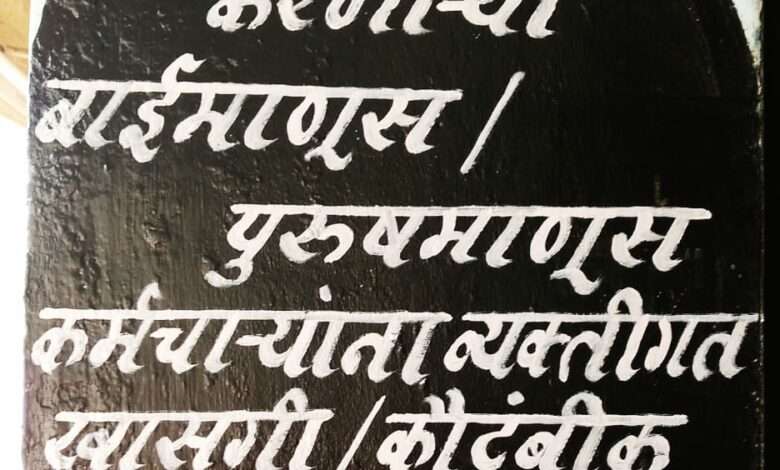 करणाऱ्या
बाईमाणूस /
पुरुषमाणूस
कर्मचाऱ्यांना व्यक्तीगत
खासगी / कौटुंबीक